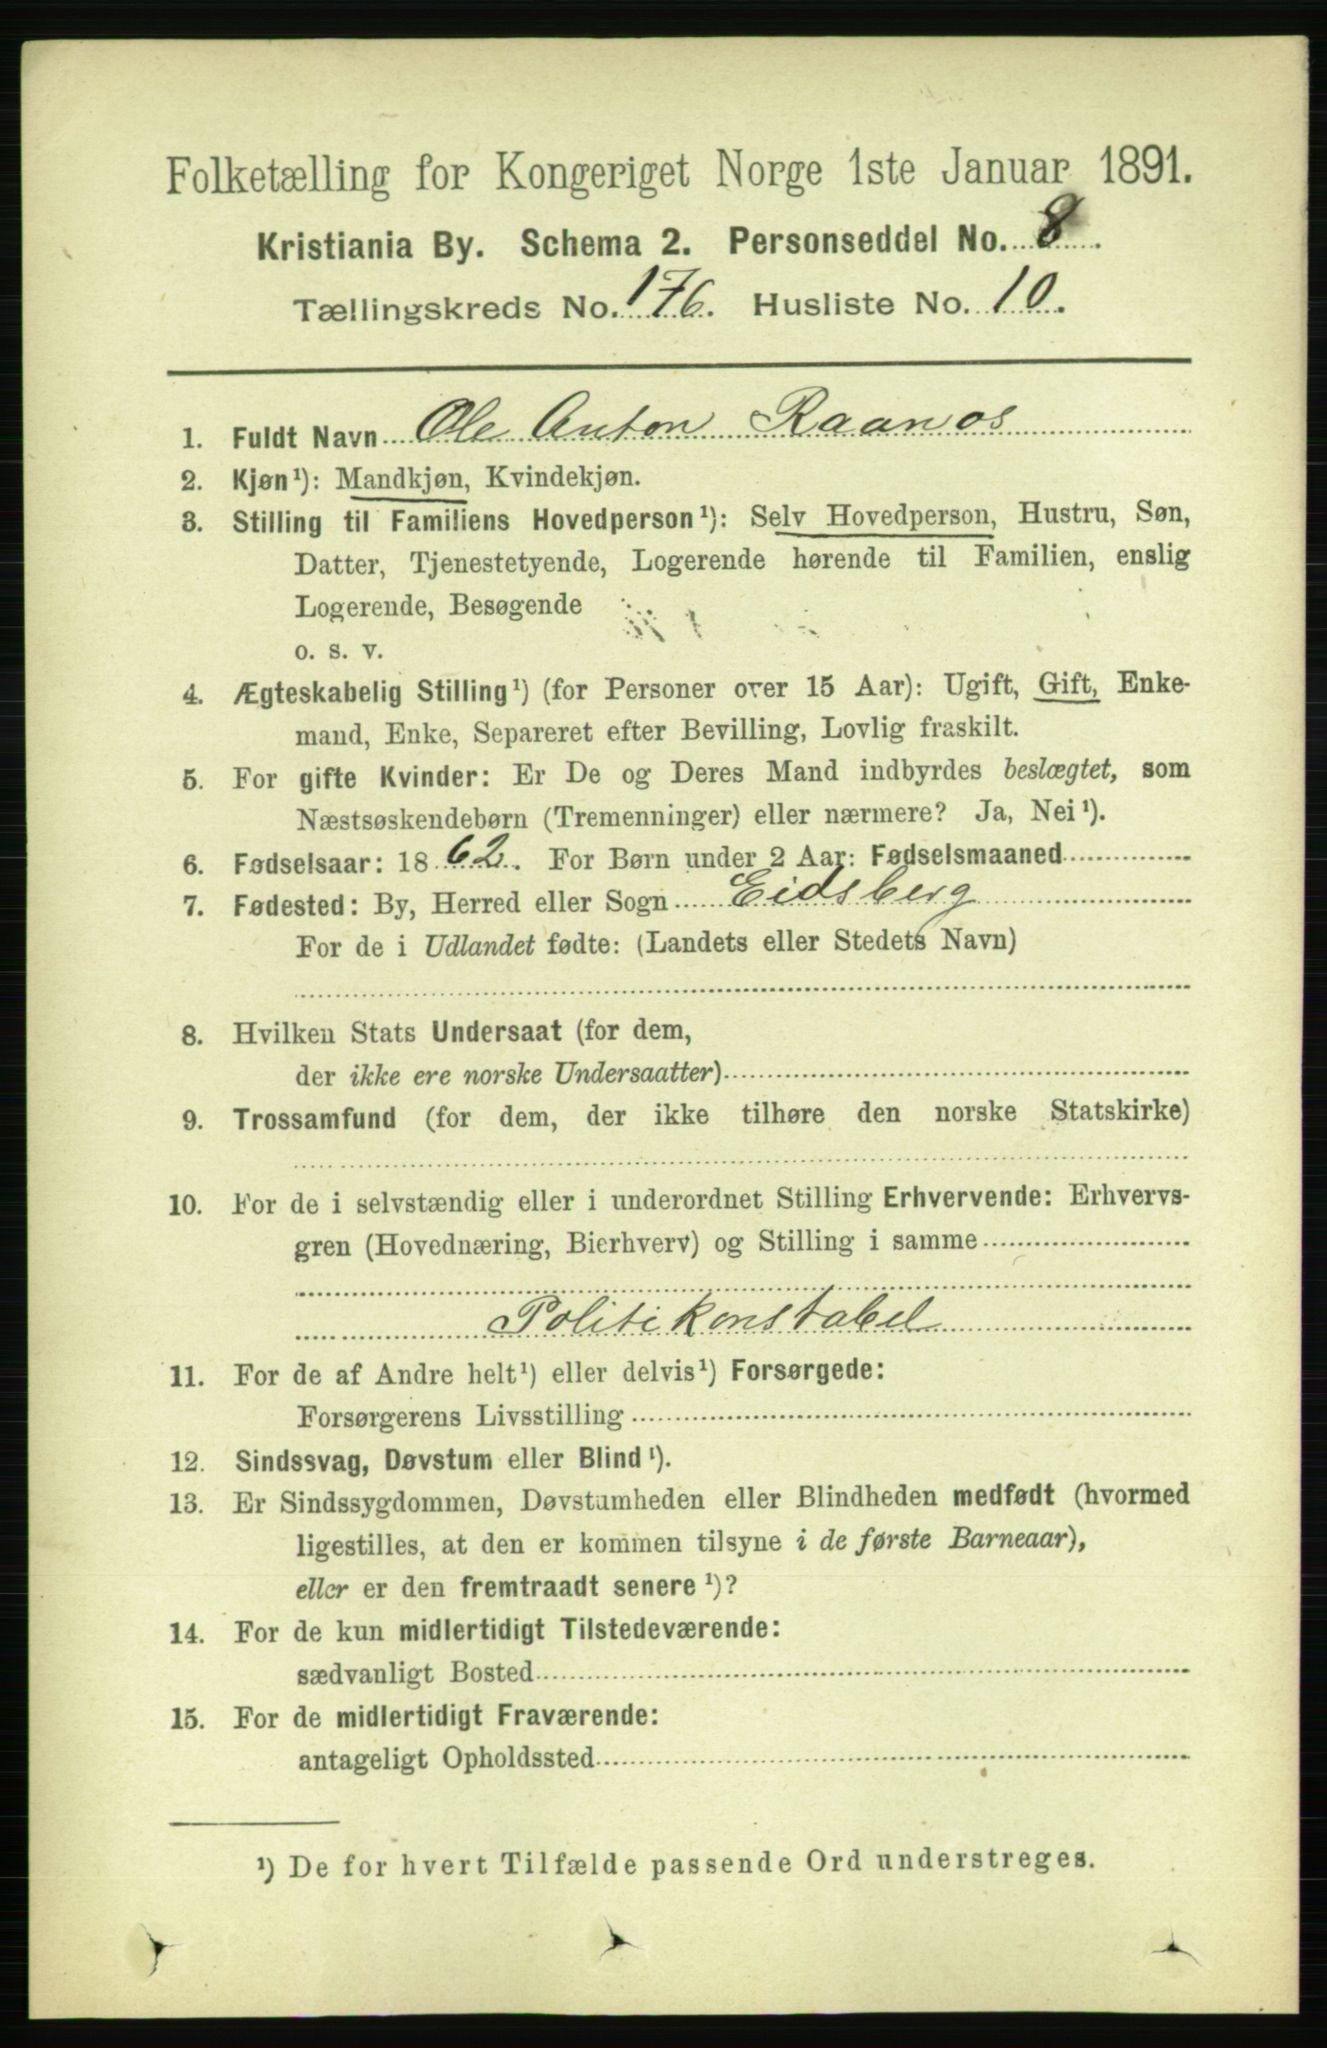 Folketælling for Kongeriget Norge 1ste Januar 1891.
Kristiania By. Schema 2. Personseddel No. 8.
Tællingskreds No. 176. Husliste No. 10.
1. Fuldt Navn Ole Anton Raanos
2. Kjøn¹): Mandkjøn, Kvindekjøn.
3. Stilling til Familiens Hovedperson¹): Selv Hovedperson, Hustru, Søn,
Datter, Tjenestetyende, Logerende hørende til Familien, enslig
Logerende, Besøgende
o. s. v.
4. Ægteskabelig Stilling¹) (for Personer over 15 Aar): Ugift, Gift, Enke-
mand, Enke, Separeret efter Bevilling, Lovlig fraskilt.
5. For gifte Kvinder: Er De og Deres Mand indbyrdes beslægtet, som
Næstsøskendebørn (Tremenninger) eller nærmere? Ja, Nei¹).
6. Fødselsaar: 1862. For Børn under 2 Aar: Fødselsmaaned
7. Fødested: By, Herred eller Sogn Eidsberg
For de i Udlandet fødte: (Landets eller Stedets Navn)
8. Hvilken Stats Undersaat (for dem,
der ikke ere norske Undersaatter)
9. Trossamfund (for dem, der ikke tilhøre den norske Statskirke)
10. For de i selvstændig eller i underordnet Stilling Erhvervende: Erhvervs-
gren (Hovednæring, Bierhverv) og Stilling i samme
Politikonstabel
11. For de af Andre helt¹) eller delvis¹) Forsørgede:
Forsørgerens Livsstilling
12. Sindssvag, Døvstum eller Blind¹).
13. Er Sindssygdommen, Døvstumheden eller Blindheden medfødt (hvormed
ligestilles, at den er kommen tilsyne i de første Barneaar),
eller er den fremtraadt senere¹)?
14. For de kun midlertidigt Tilstedeværende:
sædvanligt Bosted
15. For de midlertidigt Fraværende:
antageligt Opholdssted
¹) De for hvert Tilfælde passende Ord understreges.